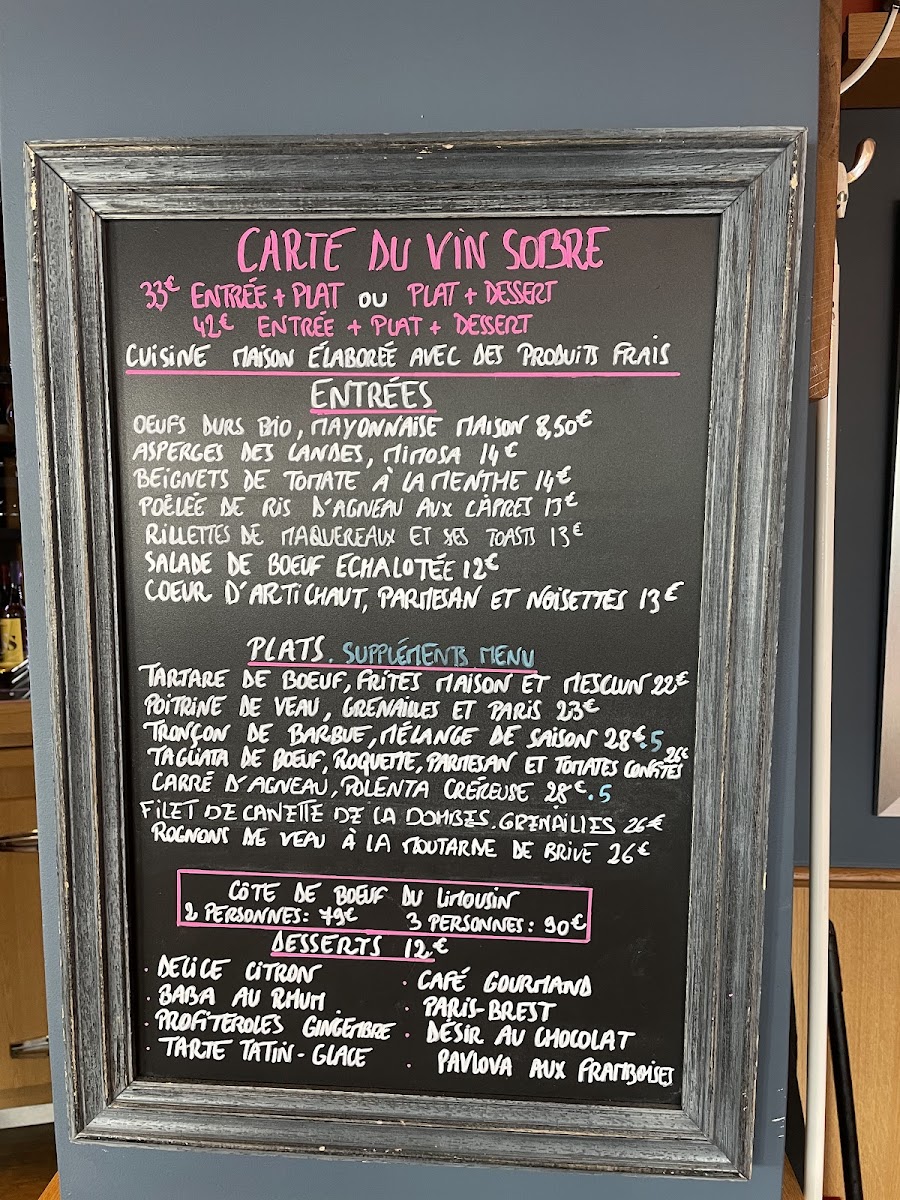 CARTE DU VIN SOBRE
33€ ENTRÉE + PLAT OU PLAT + DESSERT
42€ ENTRÉE + PLAT + DESSERT
CUISINE MAISON ÉLABORÉE AVEC DES PRODUITS FRAIS
ENTRÉES
OEUFS DURS BIO, MAYONNAISE MAISON 8,50€
ASPERGES DES LANDES, MIMOSA 14€
BEIGNETS DE TOMATE À LA MENTHE 14€
POÊLÉE DE RIS D'AGNEAU AUX CÂPRES 13€
RILLETTES DE MAQUEREAUX ET SES TOASTS 13€
SALADE DE BOEUF ECHALOTÉE 12€
COEUR D'ARTICHAUT, PARMESAN ET NOISETTES 13€
PLATS. SUPPLÉMENTS MENU
TARTARE DE BOEUF, FRITES MAISON ET MESCLUN 22€
POITRINE DE VEAU, GRENAILLES ET PARIS 23€
TRONÇON DE BARBUE, MÉLANGE DE SAISON 28€.5
TAGLIATA DE BOEUF, ROQUETTE, PARMESAN ET TOMATES CONFITES 26€
CARRÉ D'AGNEAU, POLENTA CRÉMEUSE 28€.5
FILET DE CANETTE DE LA DOMBES. GRENAILLES 26€
ROGNONS DE VEAU À LA MOUTARDE DE BRIVE 26€
CÔTE DE BOEUF DU LIMOUSIN
2 PERSONNES: 79€ 3 PERSONNES: 90€
DESSERTS 12€
· DELICE CITRON
· BABA AU RHUM
· PROFITEROLES GINGEMBRE
· TARTE TATIN - GLACE
· CAFÉ GOURMAND
· PARIS-BREST
· DÉSIR AU CHOCOLAT
· PAVLOVA AUX FRAMBOISES